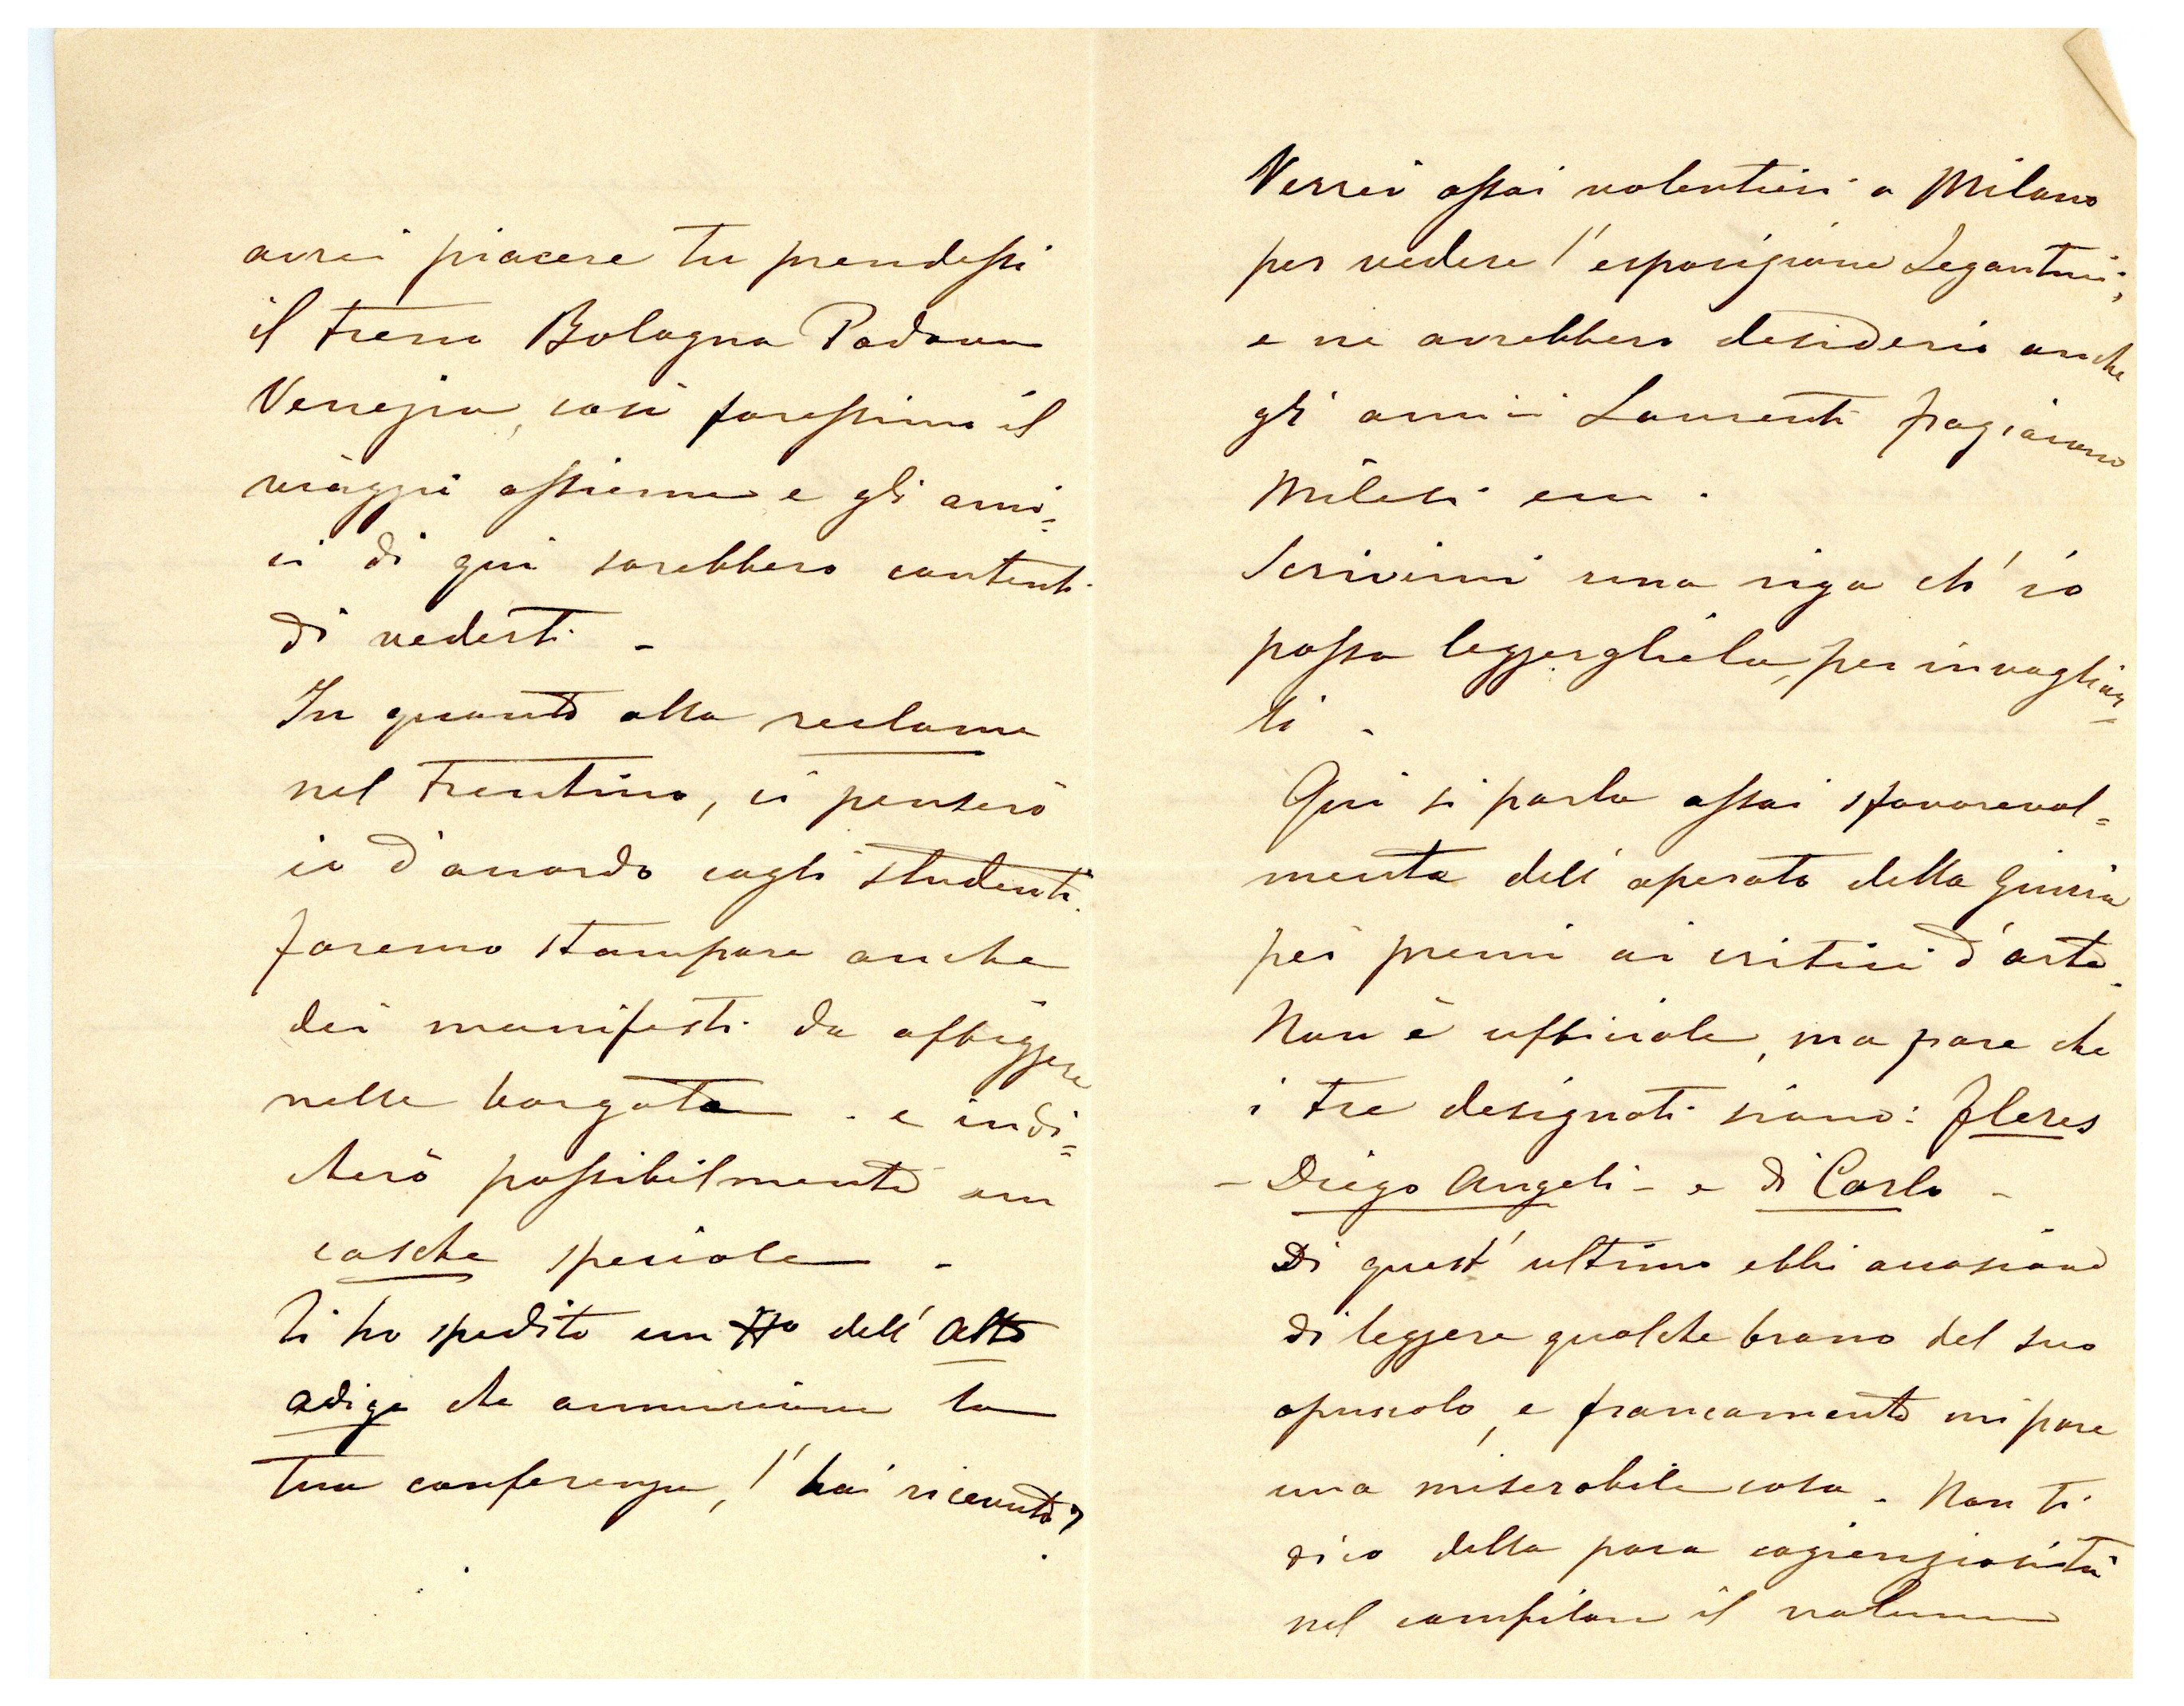 avrei piacere tu prendessi
il treno Bologna Padova
Venezia, così faressimo il
viaggio assieme e gli ami=
ci di qui sarebbero contenti
di vederti -
In quanto alla reclame
nel Trentino, ci penserò
io d'accordo cogli studenti.
faremo stampare anche
dei manifesti da affiggere
nelle borgate - e indi=
cherò possibilmente un
casche speciale -
Ti ho spedito un No dell'Alto
Adige che annunciava la
tua conferenza, l'hai ricevuto?
Verrei assai volentieri a Milano
per vedere l'esposizione Segantini;
e ne avrebbero desiderio anche
gli amici Laurenti Fragiacomo
Milesi ecc.
Scrivimi una riga ch'io
possa leggergliela, per invogliar=
li -
Qui si parla assai sfavorevol=
mente dell'operato della Giuria
pei premi ai critici d'arte.
Non è ufficiale, ma pare che
i tre designati siano: Fleres
- Diego Angeli - e di Carlo -
Di quest'ultimo ebbi occasione
di leggere qualche brano del suo
opuscolo, e francamente mi pare
una miserabile cosa. Non ti
dico della poca coscienziosità
nel compilare il volume